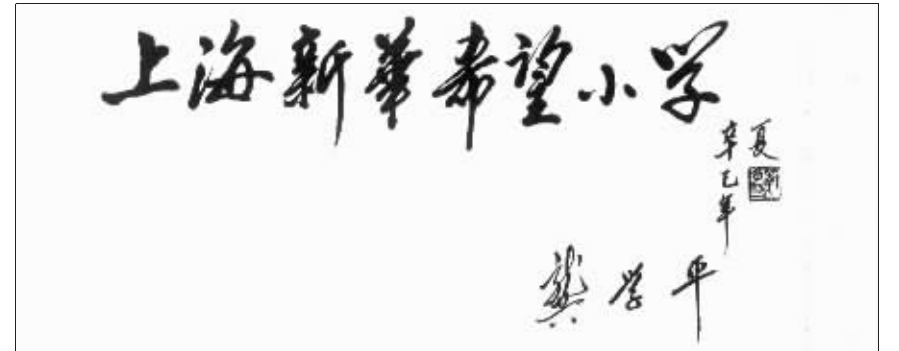 上海新華希望小学
夏
辛巳年
龔学平